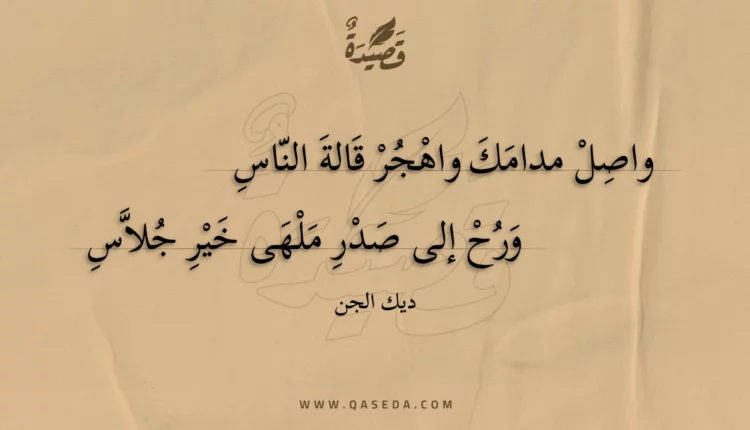 قَصِيدَةٌ
واصِلْ مدامَكَ واهْجُرْ قَالةَ النّاسِ
وَرُحْ إلى صَدْرِ مَلْهَى خَيْرِ جُلاَّسِ
ديك الجن
WWW.QASEDA.COM